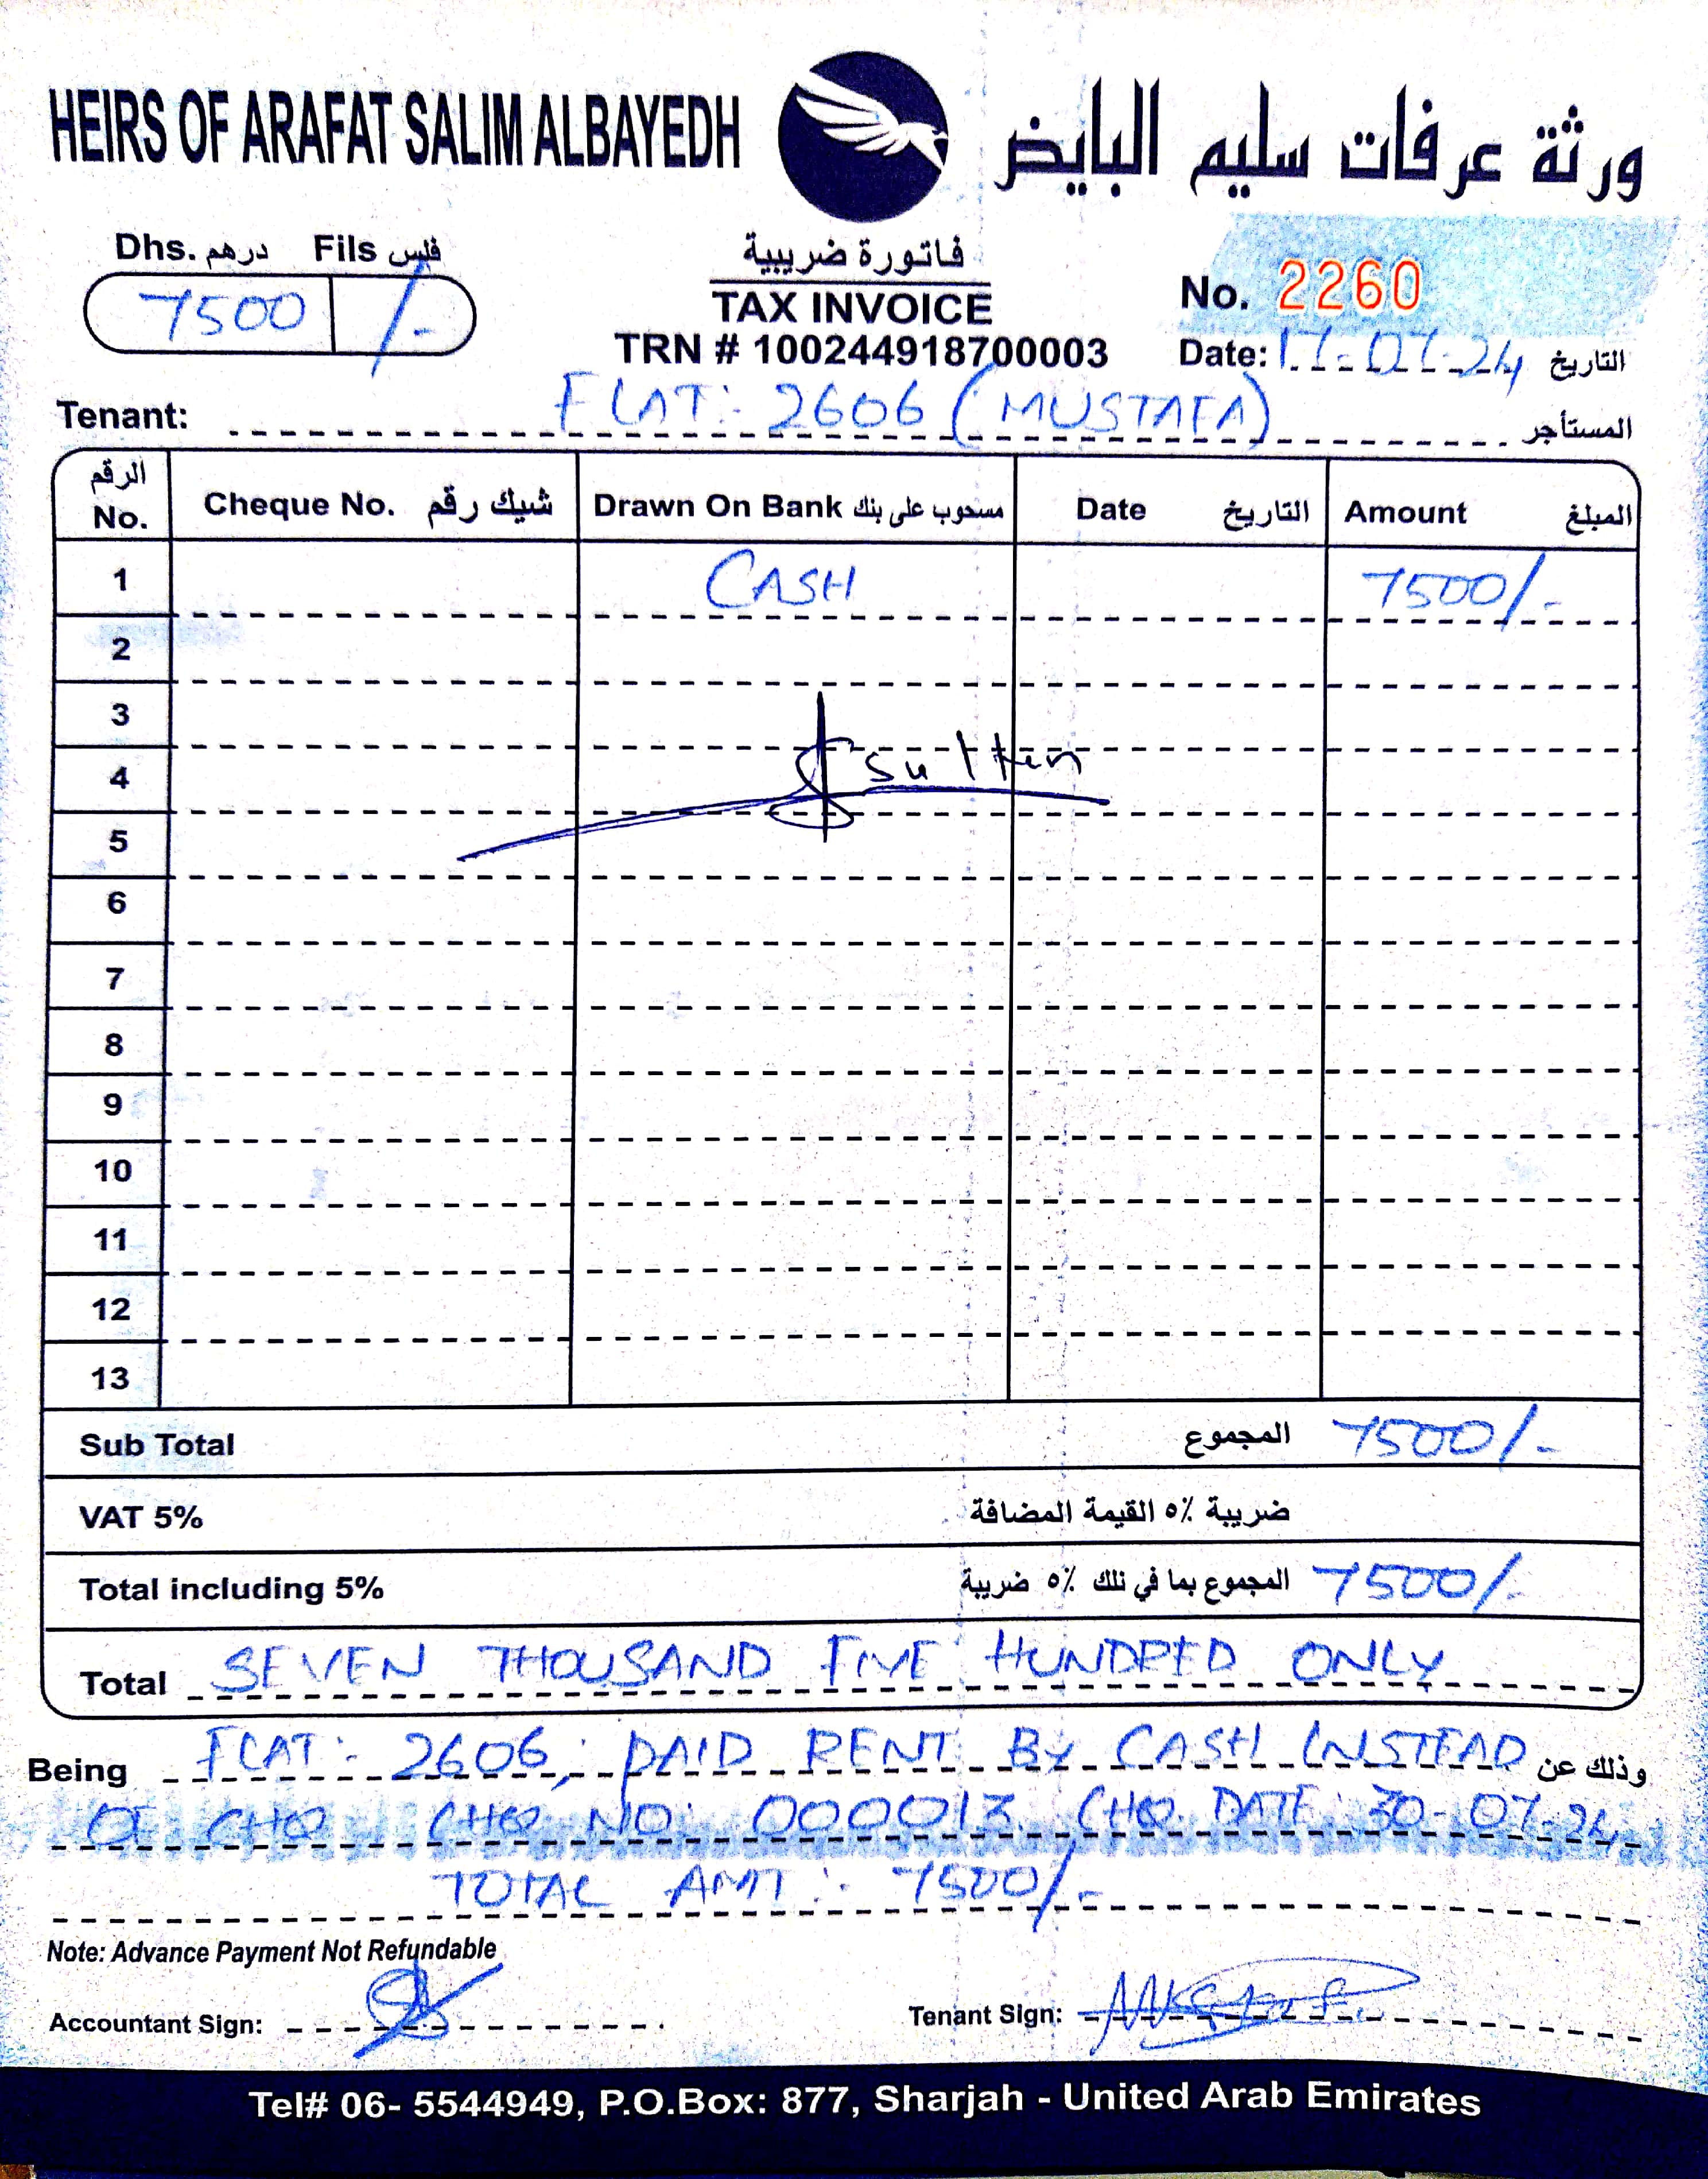 HEIRS OF ARAFAT SALIM ALBAYEDH ورثة عرفات سليم البايض
Dhs. درهم Fils فلس
7500 /-
فاتورة ضريبية
TAX INVOICE
TRN # 100244918700003
No. 2260
Date: 17-07-24 التاريخ
Tenant: FLAT:- 2606 (MUSTAFA) المستأجر
الرقم No. Cheque No. شيك رقم Drawn On Bank مسحوب على بنك Date التاريخ Amount المبلغ
1 CASH 7500/-
2
3
4 sultan
5
6
7
8
9
10
11
12
13
Sub Total المجموع 7500/-
VAT 5% ضريبة ٥٪ القيمة المضافة
Total including 5% المجموع بما في ذلك ٥٪ ضريبة 7500/-
Total SEVEN THOUSAND FIVE HUNDRED ONLY
Being FLAT:- 2606, PAID RENT BY CASH INSTEAD وذلك عن
OF CHQ CHQ NO: 000013. CHQ. DATE: 30-07-24
TOTAL AMT:- 7500/-
Note: Advance Payment Not Refundable
Accountant Sign: Tenant Sign:
Tel# 06- 5544949, P.O.Box: 877, Sharjah - United Arab Emirates